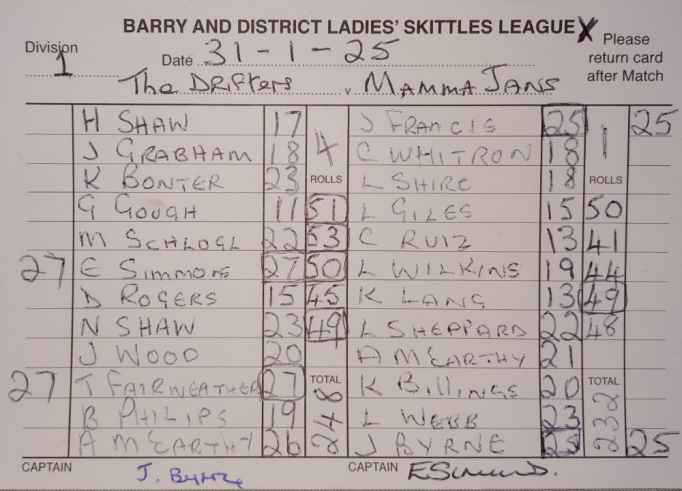 BARRY AND DISTRICT LADIES' SKITTLES LEAGUE X
Please return card after Match
Division 1 Date 31-1-25
The DRIFTERS v. MAMMA JANS
H SHAW 17 4 J FRANCIS 25 1 25
J GRABHAM 18 C WHITRON 18
K BONTER 23 ROLLS L SHIRE 18 ROLLS
G GOUGH 11 51 L GILES 15 50
M SCHLOGL 22 53 C RUIZ 13 41
27 E SIMMONS 27 50 L WILKINS 19 44
D ROGERS 15 45 K LANG 13 49
N SHAW 23 49 L SHEPPARD 22 48
J WOOD 20 A McCARTHY 21
27 T FAIRWEATHER 27 TOTAL K BILLINGS 20 TOTAL
B PHILIPS 19 248 L WEBB 23 232
A McCARTHY 26 J BYRNE 25 25
CAPTAIN J. Byrne CAPTAIN